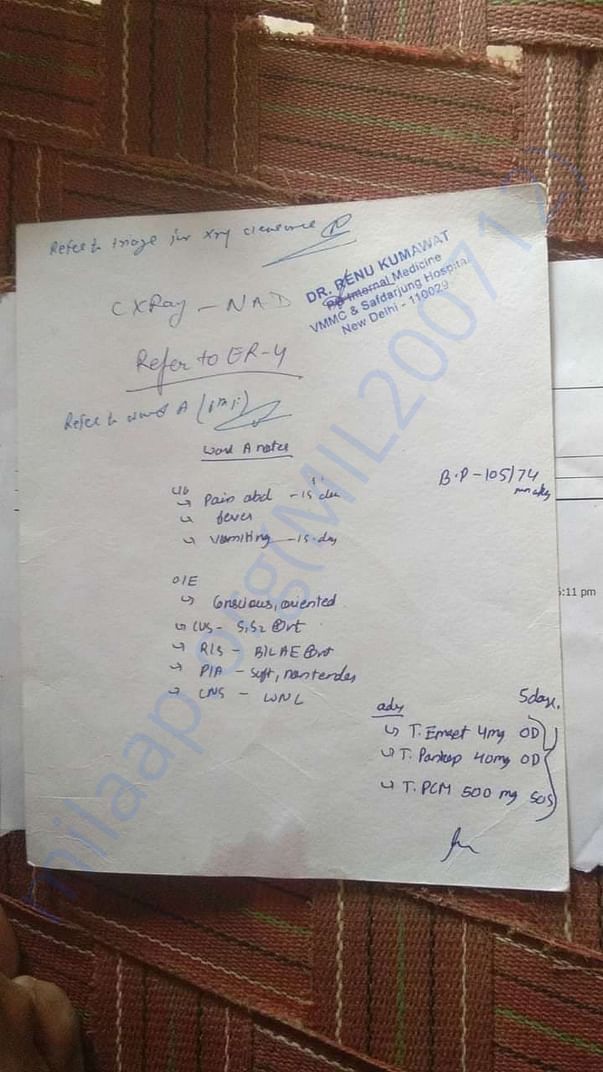 Refer to triage for xray clearance
DR. RENU KUMAWAT
PG Internal Medicine
VMMC & Safdarjung Hospital
New Delhi - 110029
CXRay - NAD
Refer to ER-4
Refer to ward A
Ward A notes
B.P - 105/74
mmHg
c/o
↳ Pain abd - 15 day
↳ fever
↳ vomiting - 15 day
5:11 pm
O/E
↳ Conscious, oriented
↳ CVS - S1S2 ⊕nt
↳ R/S - B/L AE ⊕nt
↳ P/A - Soft, nontender
↳ CNS - WNL
adv
5 days.
↳ T. Emset 4mg OD
↳ T. Pantop 40mg OD
↳ T. PCM 500 mg SOS
milaap.org(MIL200712)